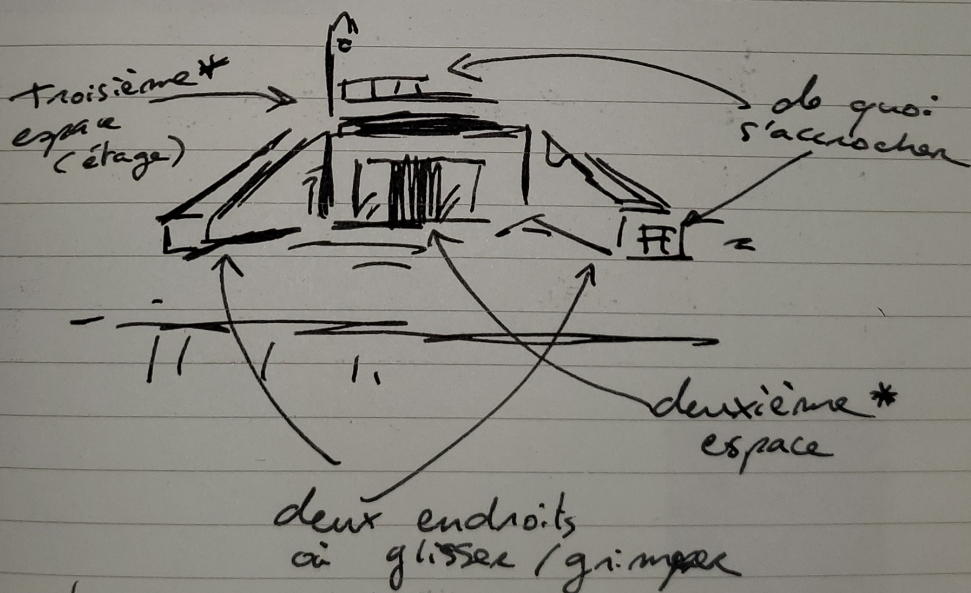 troisième*
espace
(étage)
de quoi
s'accrocher
deuxième*
espace
deux endroits
où glisser/grimper